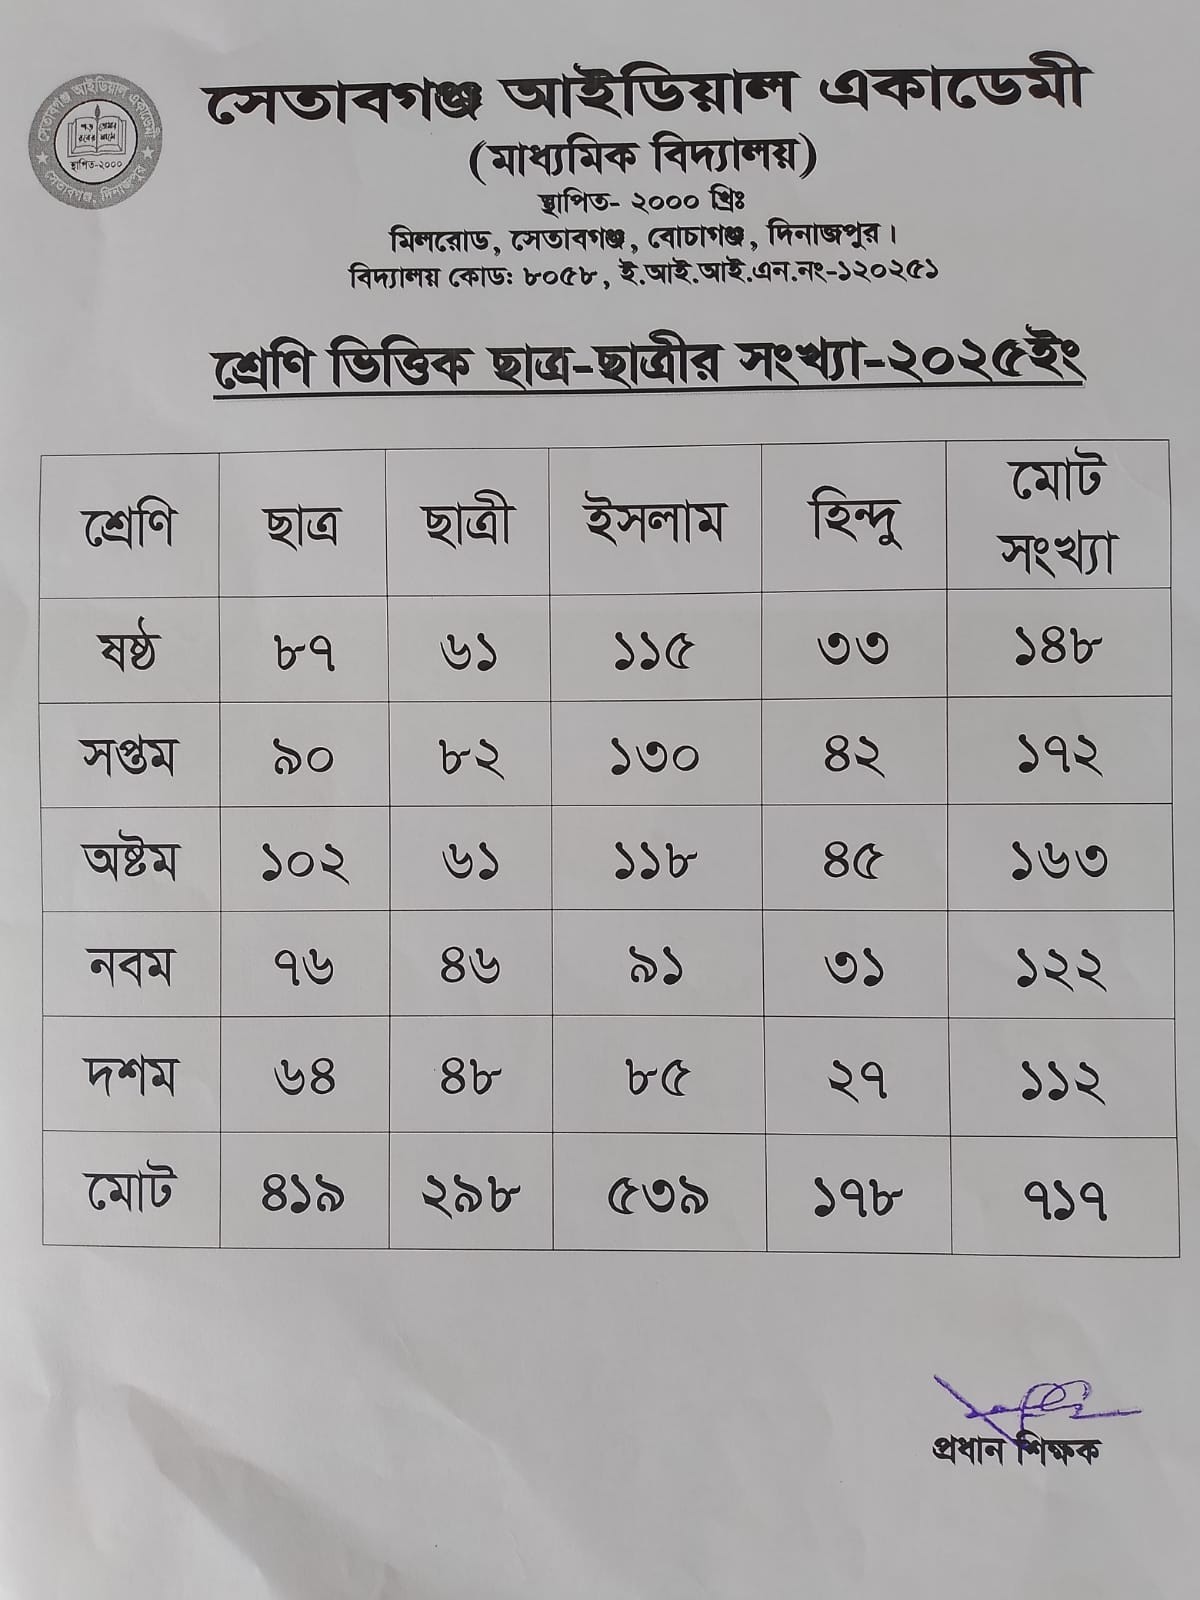 সেতাবগঞ্জ আইডিয়াল একাডেমী
(মাধ্যমিক বিদ্যালয়)
স্থাপিত- ২০০০ খ্রিঃ
মিলরোড, সেতাবগঞ্জ, বোচাগঞ্জ, দিনাজপুর।
বিদ্যালয় কোড: ৮০৫৮, ই.আই.আই.এন.নং-১২০২৫১
সেতাবগঞ্জ আইডিয়াল একাডেমী
স্থাপিত-২০০০
সেতাবগঞ্জ, দিনাজপুর
শ্রেণি ভিত্তিক ছাত্র-ছাত্রীর সংখ্যা-২০২৫ইং
শ্রেণি ছাত্র ছাত্রী ইসলাম হিন্দু মোট সংখ্যা
ষষ্ঠ ৮৭ ৬১ ১১৫ ৩৩ ১৪৮
সপ্তম ৯০ ৮২ ১৩০ ৪২ ১৭২
অষ্টম ১০২ ৬১ ১১৮ ৪৫ ১৬৩
নবম ৭৬ ৪৬ ৯১ ৩১ ১২২
দশম ৬৪ ৪৮ ৮৫ ২৭ ১১২
মোট ৪১৯ ২৯৮ ৫৩৯ ১৭৮ ৭১৭
প্রধান শিক্ষক